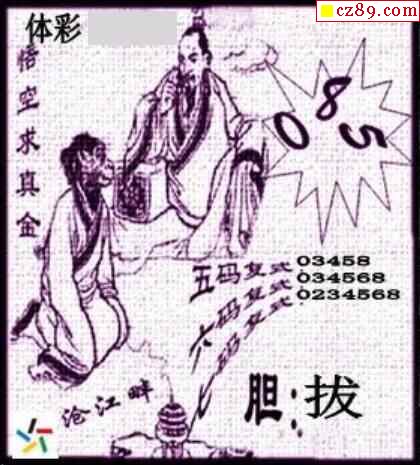 cz89.com
体彩
悟空求真金
085
五码复式 03458
六码复式 034568
七码复式 0234568
沧江畔
胆:拔